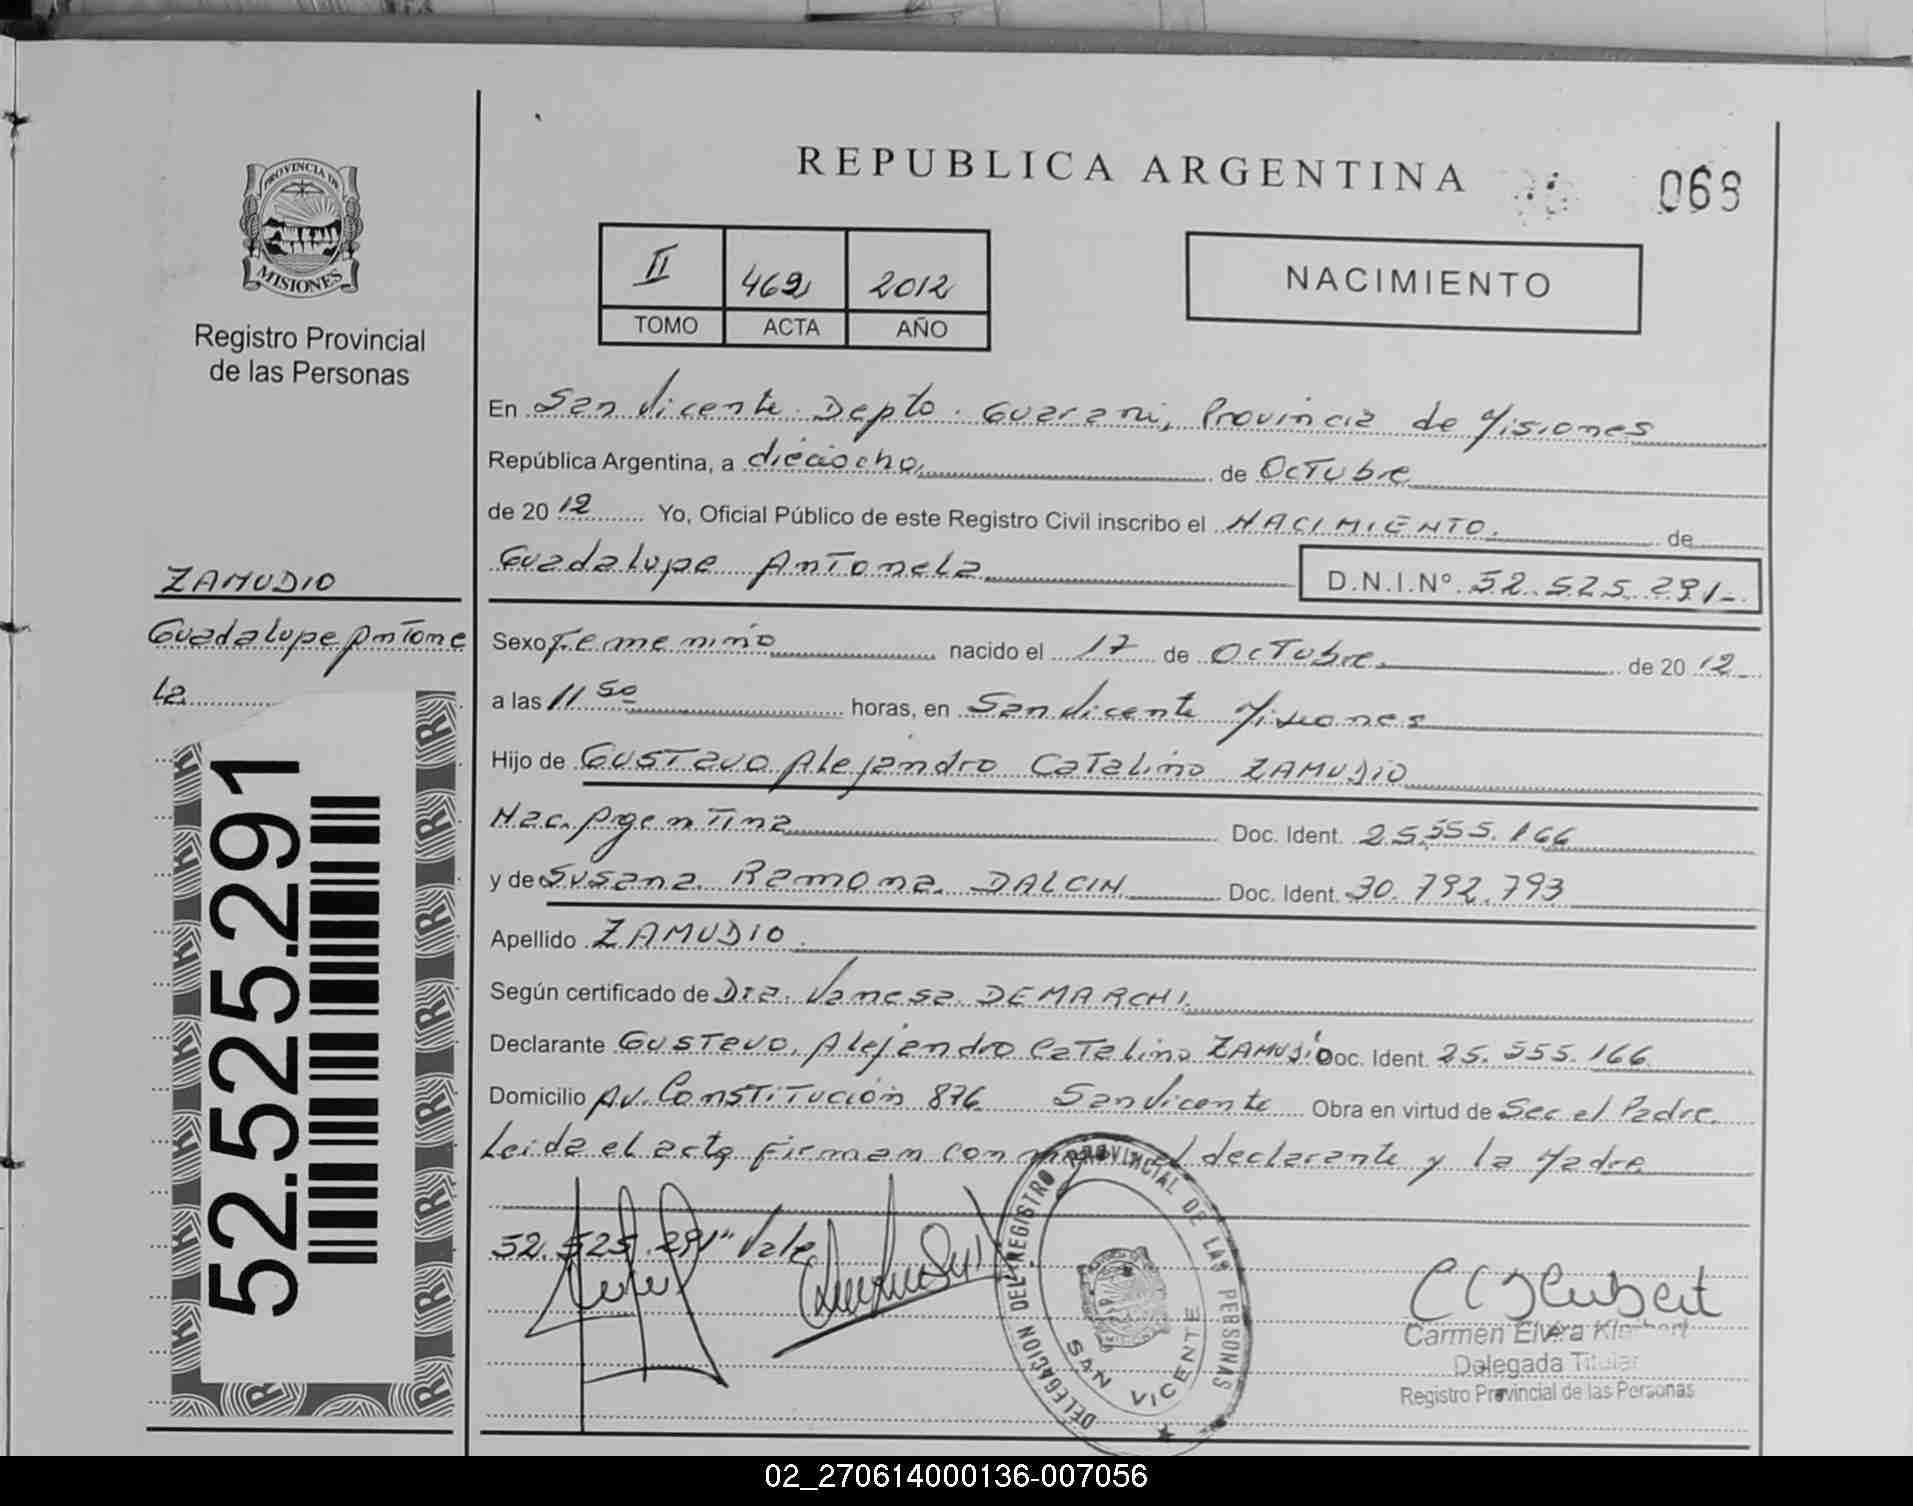 REPUBLICA ARGENTINA
068
PROVINCIA DE
MISIONES
Registro Provincial
de las Personas
II 469 2012
TOMO ACTA AÑO
NACIMIENTO
En San Vicente Depto. Guarani, Provincia de Misiones
República Argentina, a dieciocho de Octubre
de 2012 Yo, Oficial Público de este Registro Civil inscribo el NACIMIENTO. de
Guadalupe Antonela D.N.I.Nº 52.525.291-
ZAMUDIO
Guadalupe Antone
la
Sexo Femenino nacido el 17 de Octubre de 2012
a las 11 50 horas, en San Vicente Misiones
Hijo de Gustavo Alejandro Catalino ZAMUDIO
Nac. Argentina Doc. Ident. 25.555.166
y de Susana Ramona DALCIN Doc. Ident. 30.792.793
Apellido ZAMUDIO
Según certificado de Dra. Vanesa DEMARCHI
Declarante Gustavo Alejandro Catalino ZAMUDIO Doc. Ident. 25.555.166
Domicilio Av. Constitución 876 San Vicente Obra en virtud de Sec. el Padre
Leida el acta firman con el declarante y la Madre
52.525.291" Vale
52.525.291
DELEGACION DEL REGISTRO PROVINCIAL DE LAS PERSONAS
SAN VICENTE
Carmen Elvira Klubert
Delegada Titular
Registro Provincial de las Personas
02_270614000136-007056